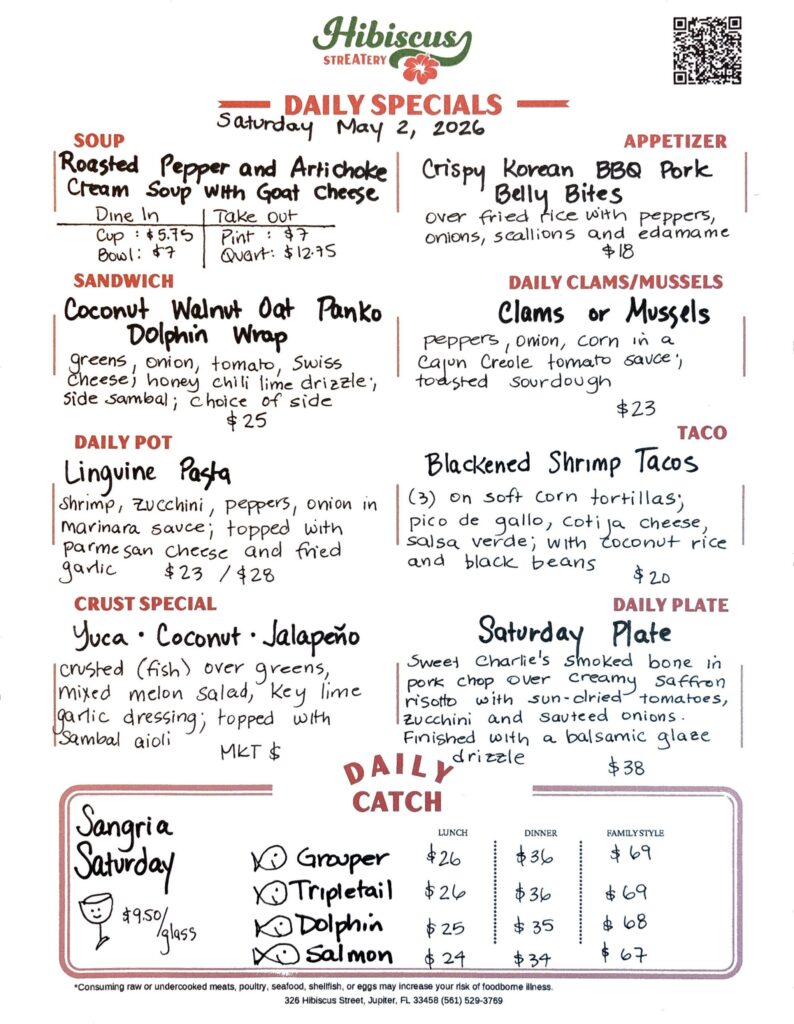 Hibiscus
STREATERY
DAILY SPECIALS
Saturday May 2, 2026
SOUP
Roasted Pepper and Artichoke
Cream Soup with Goat Cheese
Dine In | Take out
Cup : $5.75 | Pint : $7
Bowl: $7 | Quart: $12.75
APPETIZER
Crispy Korean BBQ Pork
Belly Bites
over fried rice with peppers,
onions, scallions and edamame
$18
SANDWICH
Coconut Walnut Oat Panko
Dolphin Wrap
greens, onion, tomato, Swiss
cheese; honey chili lime drizzle;
side sambal; choice of side
$25
DAILY CLAMS/MUSSELS
Clams or Mussels
peppers, onion, corn in a
Cajun Creole tomato sauce;
toasted sourdough
$23
DAILY POT
Linguine Pasta
shrimp, zucchini, peppers, onion in
marinara sauce; topped with
parmesan cheese and fried
garlic $23 / $28
TACO
Blackened Shrimp Tacos
(3) on soft corn tortillas;
pico de gallo, cotija cheese,
salsa verde; with coconut rice
and black beans
$20
CRUST SPECIAL
Yuca • Coconut • Jalapeño
crusted (fish) over greens,
mixed melon salad, key lime
garlic dressing; topped with
Sambal aioli
MKT $
DAILY PLATE
Saturday Plate
Sweet Charlie's smoked bone in
pork chop over creamy saffron
risotto with sun-dried tomatoes,
zucchini and sauteed onions.
Finished with a balsamic glaze
drizzle
$38
DAILY
CATCH
Sangria
Saturday
$9.50/
glass
LUNCH DINNER FAMILY STYLE
Grouper $26 $36 $69
Tripletail $26 $36 $69
Dolphin $25 $35 $68
Salmon $24 $34 $67
*Consuming raw or undercooked meats, poultry, seafood, shellfish, or eggs may increase your risk of foodborne illness.
326 Hibiscus Street, Jupiter, FL 33458 (561) 529-3769